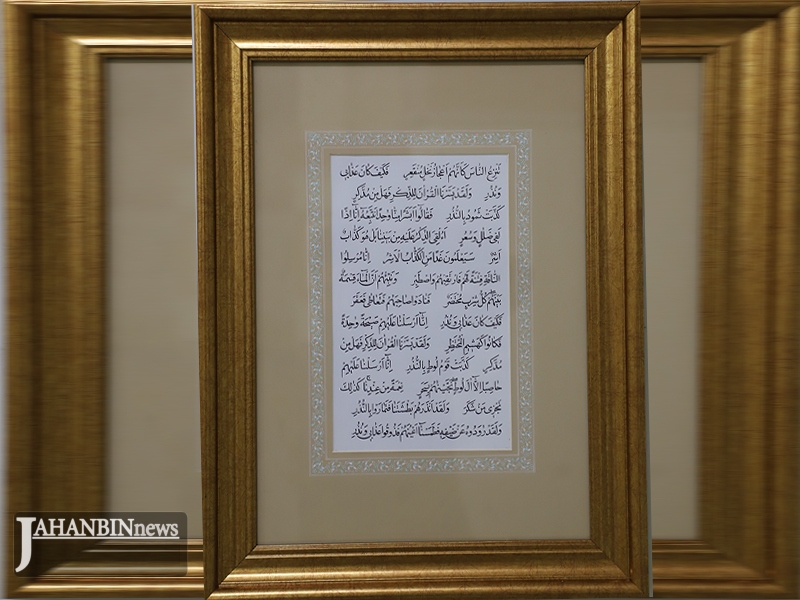 تَنْزِعُ النَّاسَ كَأَنَّهُمْ أَعْجَازُ نَخْلٍ مُنْقَعِرٍ فَكَيْفَ كَانَ عَذَابِي
وَنُذُرِ وَلَقَدْ يَسَّرْنَا الْقُرْآنَ لِلذِّكْرِ فَهَلْ مِنْ مُدَّكِرٍ
كَذَّبَتْ ثَمُودُ بِالنُّذُرِ فَقَالُوا أَبَشَرًا مِنَّا وَاحِدًا نَتَّبِعُهُ إِنَّا إِذًا
لَفِي ضَلَالٍ وَسُعُرٍ أَءُلْقِيَ الذِّكْرُ عَلَيْهِ مِنْ بَيْنِنَا بَلْ هُوَ كَذَّابٌ
أَشِرٌ سَيَعْلَمُونَ غَدًا مَنِ الْكَذَّابُ الْأَشِرُ إِنَّا مُرْسِلُوا
النَّاقَةِ فِتْنَةً لَهُمْ فَارْتَقِبْهُمْ وَاصْطَبِرْ وَنَبِّئْهُمْ أَنَّ الْمَاءَ قِسْمَةٌ
بَيْنَهُمْ كُلُّ شِرْبٍ مُحْتَضَرٌ فَنَادَوْا صَاحِبَهُمْ فَتَعَاطَى فَعَقَرَ
فَكَيْفَ كَانَ عَذَابِي وَنُذُرِ إِنَّا أَرْسَلْنَا عَلَيْهِمْ صَيْحَةً وَاحِدَةً
فَكَانُوا كَهَشِيمِ الْمُحْتَظِرِ وَلَقَدْ يَسَّرْنَا الْقُرْآنَ لِلذِّكْرِ فَهَلْ مِنْ
مُدَّكِرٍ كَذَّبَتْ قَوْمُ لُوطٍ بِالنُّذُرِ إِنَّا أَرْسَلْنَا عَلَيْهِمْ
حَاصِبًا إِلَّا آلَ لُوطٍ نَجَّيْنَاهُمْ بِسَحَرٍ نِعْمَةً مِنْ عِنْدِنَا كَذَلِكَ
نَجْزِي مَنْ شَكَرَ وَلَقَدْ أَنْذَرَهُمْ بَطْشَتَنَا فَتَمَارَوْا بِالنُّذُرِ
وَلَقَدْ رَاوَدُوهُ عَنْ ضَيْفِهِ فَطَمَسْنَا أَعْيُنَهُمْ فَذُوقُوا عَذَابِي وَنُذُرِ
JAHANBINnews